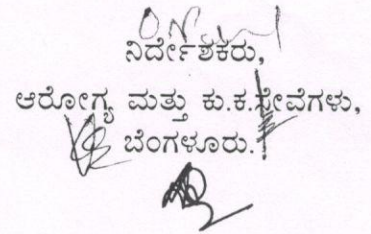 ನಿರ್ದೇಶಕರು,
ಆರೋಗ್ಯ ಮತ್ತು ಕು.ಕ.ಸೇವೆಗಳು,
ಬೆಂಗಳೂರು.